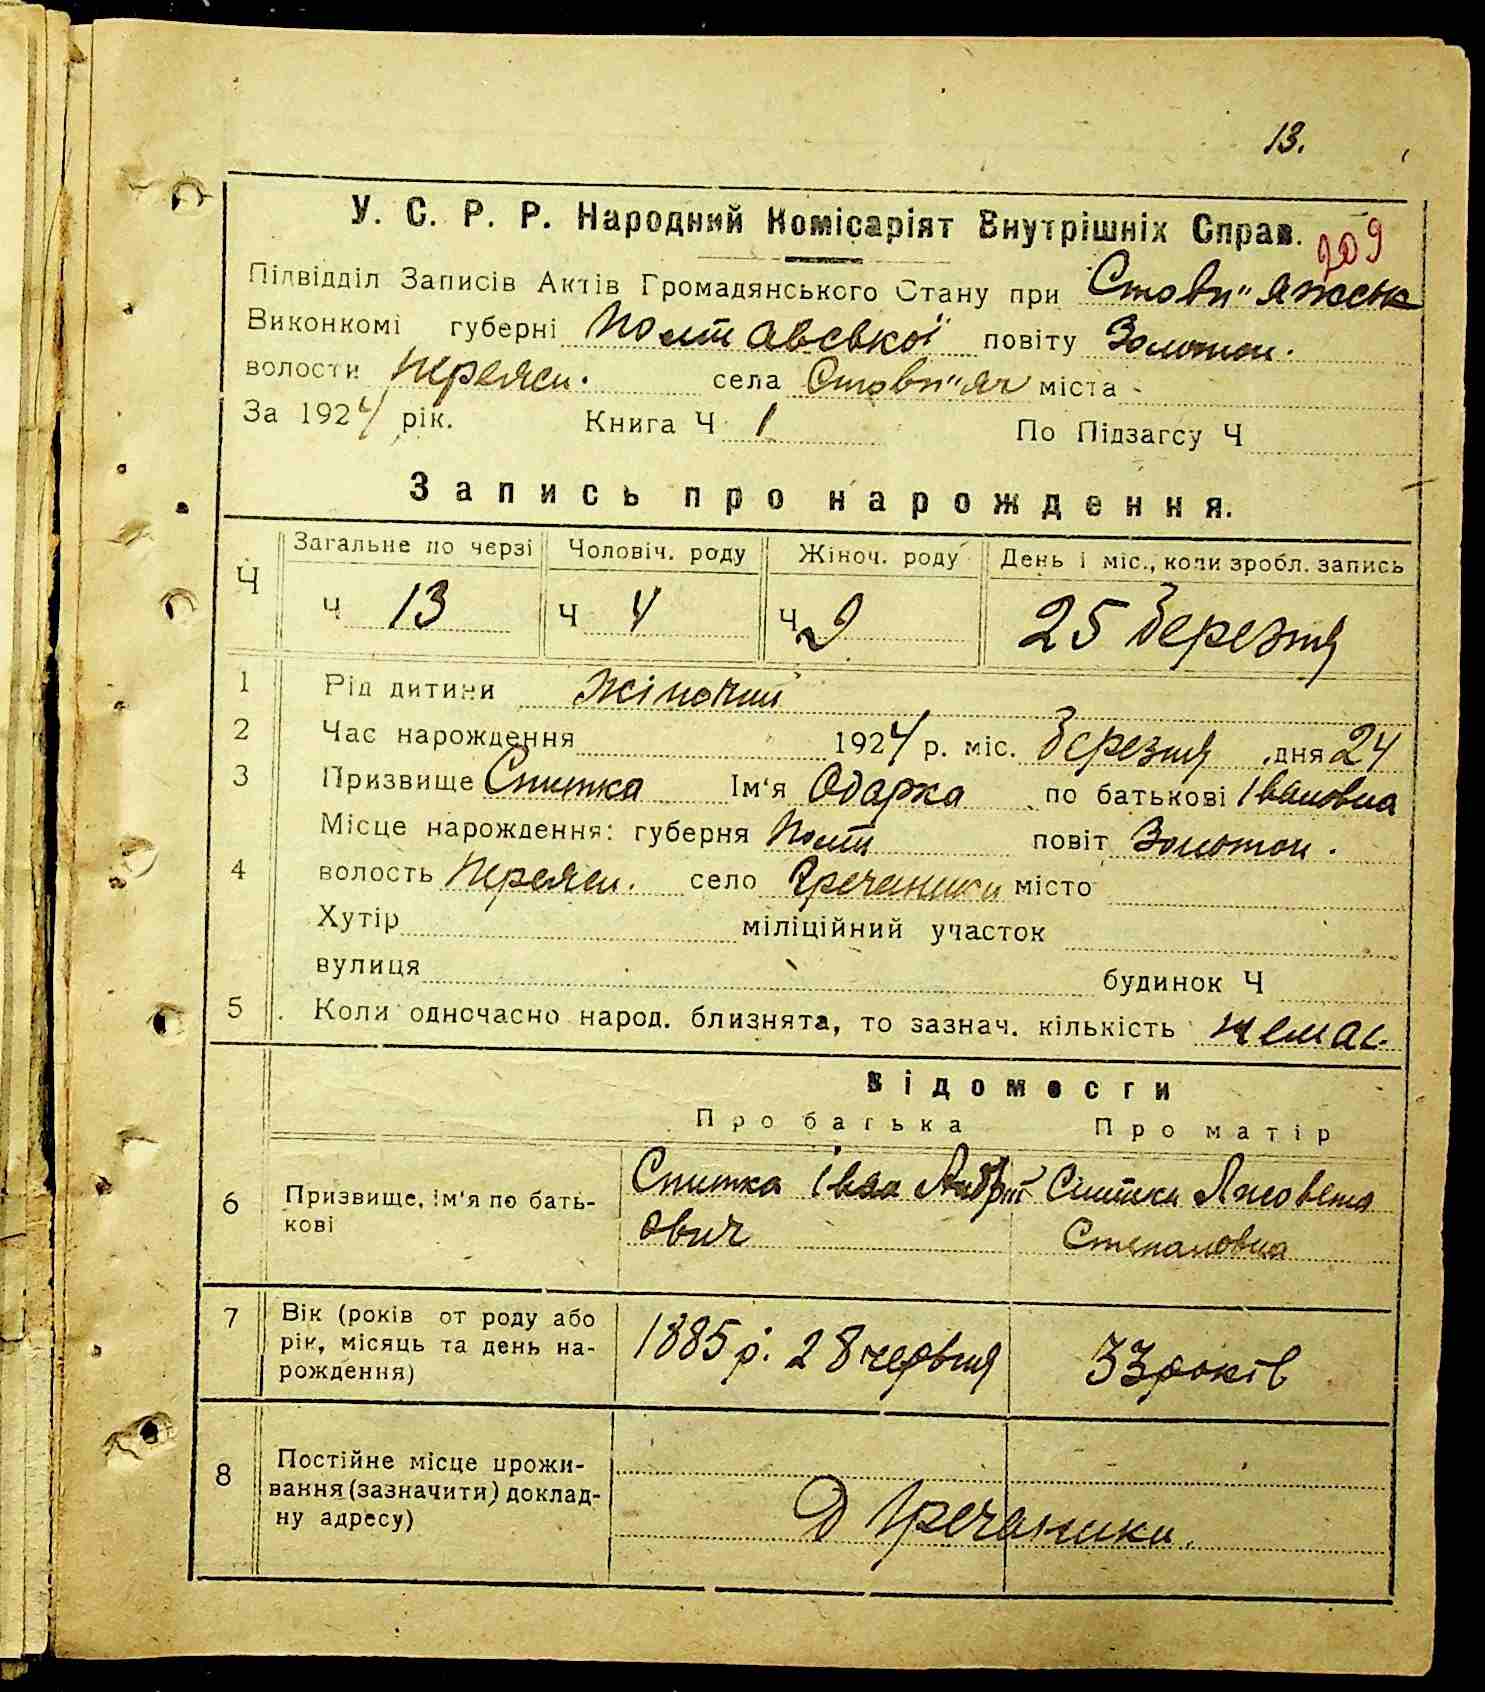 13.
У. С. Р. Р. Народний Комісаріят Внутрішніх Справ.
209
Підвідділ Записів Актів Громадянського Стану при Стовп"яжськ
Виконкомі губерні Полтавської повіту Золотон.
волости Переясл. села Стовп"яг міста -
За 1924 рік. Книга Ч 1 По Підзагсу Ч
Запись про народження.
Ч Загальне по черзі Чоловіч. роду Жіноч. роду День і міс., коли зробл. запись
ч 13 Ч 4 Ч 9 25 березня
1 Рід дитини жіночий
2 Час народження 1924 р. міс. березня дня 24
3 Призвище Спитка Ім'я Одарка по батькові Івановна
Місце народження: губерня Полт повіт Золотон.
4 волость Переясл. село Гречаники місто
Хутір міліційний участок
вулиця будинок Ч
5 Коли одночасно народ. близнята, то зазнач. кількість немає.
Відомости
Про батька Про матір
6 Призвище, ім'я по бать-
кові
Спитка Іван
ович
Спитка
Степановна
7 Вік (років от роду або
рік, місяць та день на-
рождення)
1885 р. 28 червня 33 років
8 Постійне місце прожи-
вання (зазначити) доклад-
ну адресу)
Д Гречаники.